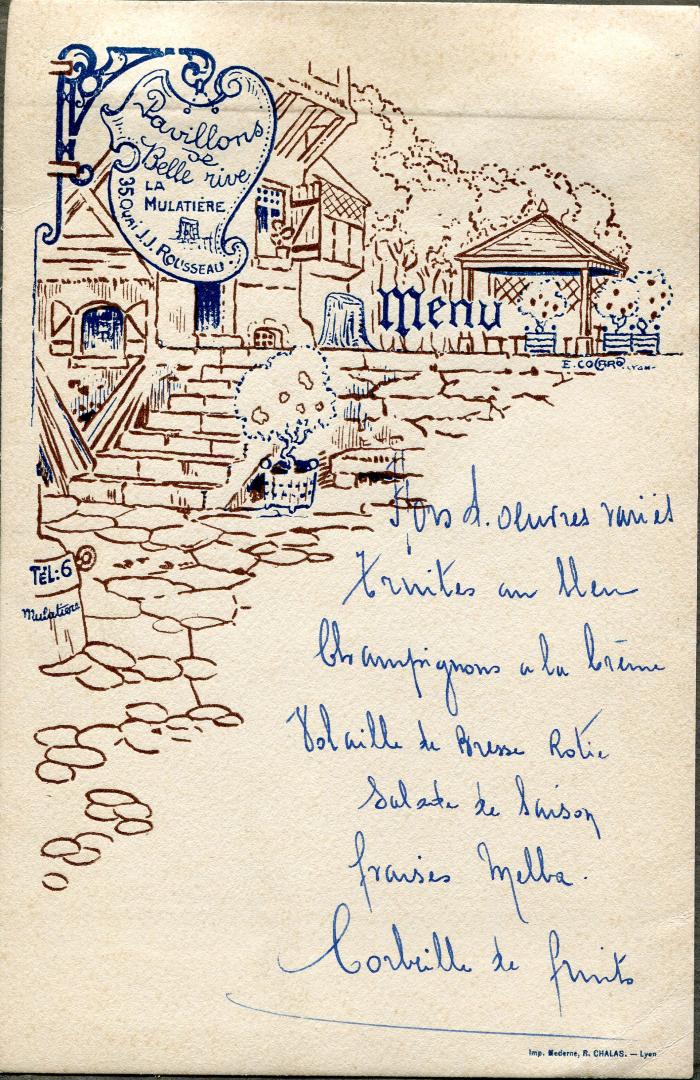 Pavillons
de
Belle rive
LA
MULATIÈRE
35 QUAI J.J. ROUSSEAU
Menu
E. COGARD LYON
TÉL: 6
Mulatière
Hors d. oeuvres variés
Truites au bleu
Champignons a la Crème
Volaille de Bresse Rotie
Salade de Saison
fraises Melba.
Corbeille de fruits
Imp. Moderne, R. CHALAS. — Lyon